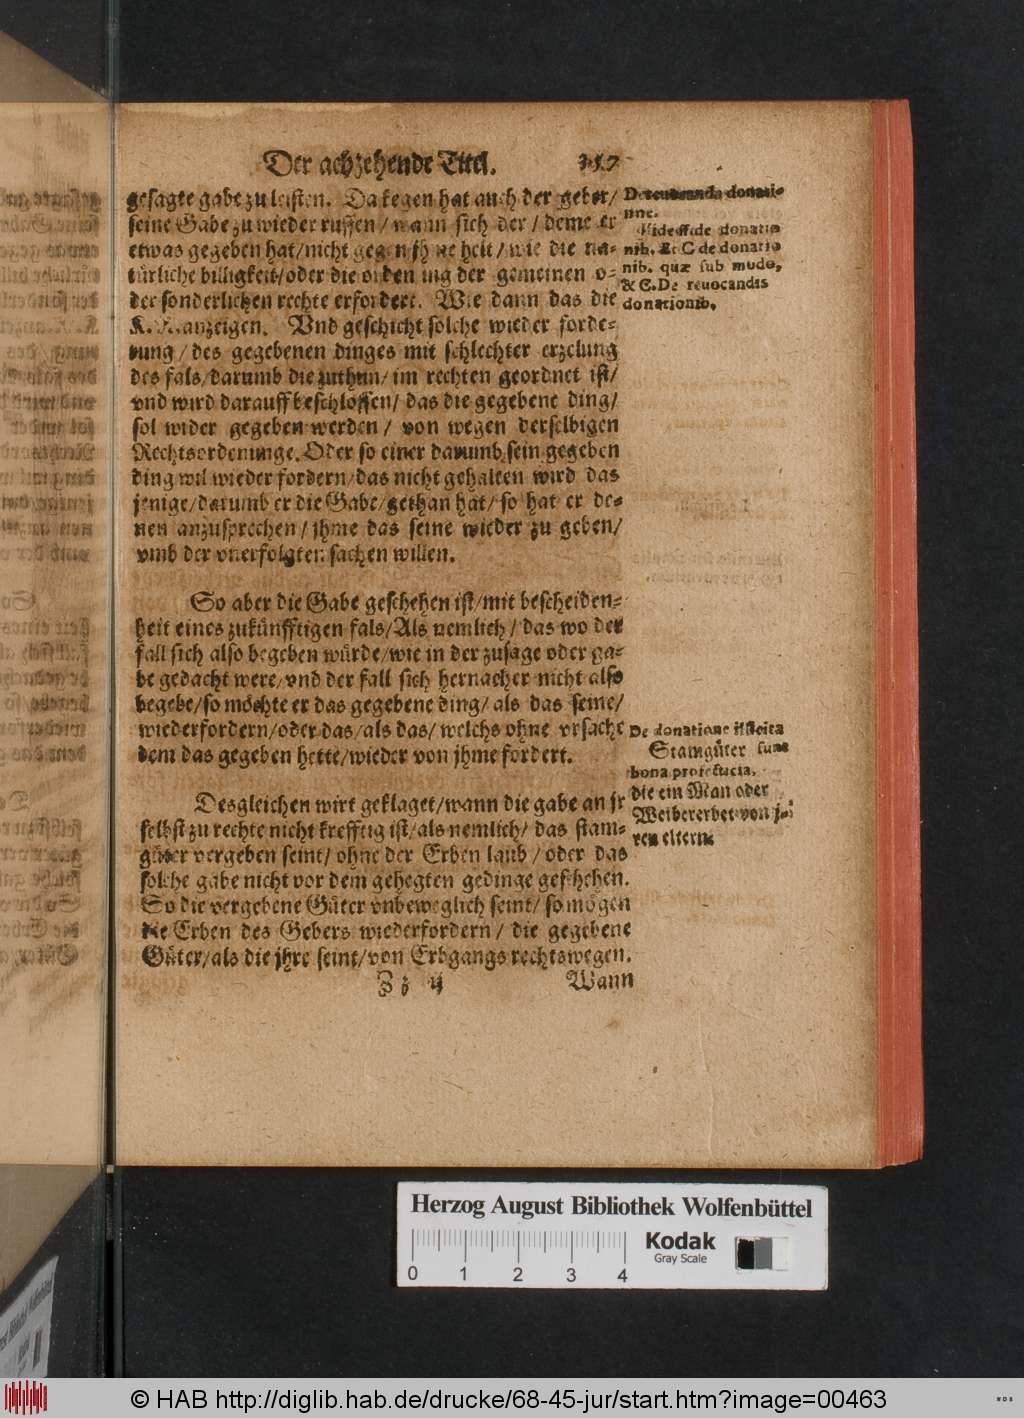 Der achzehende Titel. 357
gesagte gabe zu leisten. Dakegen hat auch der geber/
seine Gabe zu wieder ruffen/ wann sich der/ deme er
etwas gegeben hat/ nicht gegen jhme helt/ wie die na-
türliche billigkeit/ oder die ordenung der gemeinen o-
der sonderlichen rechte erfordert. Wie dann das die
K. R. anzeigen. Vnd geschicht solche wieder forde-
rung/ des gegebenen dinges mit schlechter erzelung
des fals/ darumb die zuthun/ im rechten geordnet ist/
vnd wird darauff beschlossen/ das die gegebene ding/
sol wider gegeben werden/ von wegen derselbigen
Rechtsordenunge. Oder so einer darumb sein gegeben
ding wil wieder fordern/ das nicht gehalten wird das
jenige/ darumb er die Gabe/ gethan hat/ so hat er de-
nen anzusprechen/ jhme das seine wieder zu geben/
vmb der vnerfolgten sachen willen.
So aber die Gabe geschehen ist/ mit bescheiden-
heit eines zukünfftigen fals/ Als nemlich/ das wo der
fall sich also begeben würde/ wie in der zusage oder ga-
be gedacht were/ vnd der fall sich hernacher nicht also
begebe/ so möchte er das gegebene ding/ als das seine/
wiederfordern/ oder das/ als das/ welchs ohne vrsache
dem das gegeben hette/ wieder von jhme fordert.
Desgleichen wirt geklaget/ wann die gabe an jr
selbst zu rechte nicht krefftig ist/ als nemlich/ das stam-
güter vergeben seint/ ohne der Erben laub/ oder das
solche gabe nicht vor dem gehegten gedinge geschehen.
So die vergebene Güter vnbeweglich seint/ so mögen
die Erben des Gebers wiederfordern/ die gegebene
Güter/ als die jhre seint/ von Erbgangs rechtswegen.
Zz ij Wann
De reuocanda donatio-
nne.
Vide ff. de donatio
nib. & C de donatio
nib. quæ sub modo,
& C. De reuocandis
donationib.
De donatione illicita
Stamgüter sunt
bona profecticia,
die ein Man oder
Weib ererbet von j-
ren eltern.
Herzog August Bibliothek Wolfenbüttel
Kodak
Gray Scale
0 1 2 3 4
© HAB http://diglib.hab.de/drucke/68-45-jur/start.htm?image=00463